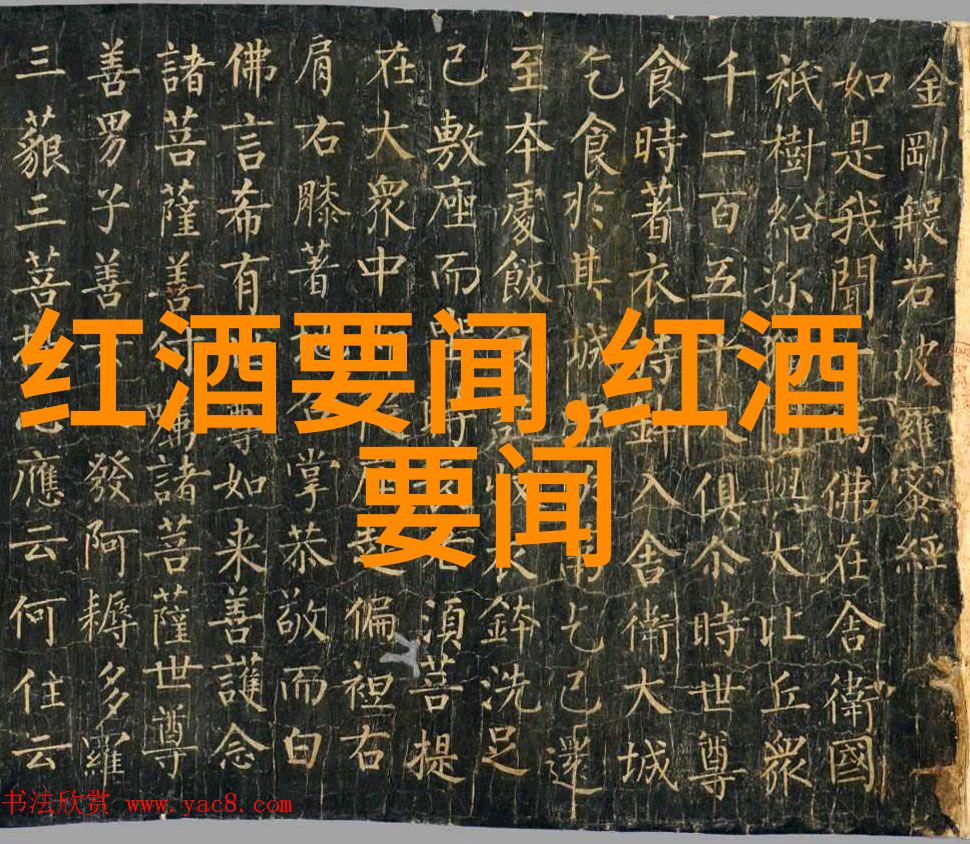 金剛般若波羅蜜經
如是我聞時佛在舍衛國
祇樹給孤與大比丘眾
千二百五十俱尒時世尊
食時著衣持入舍衛大城
乞食於其城乞已還
至本處飯衣鉢洗足
已敷座而須菩提
在大眾中起偏袒右
肩右膝著掌恭敬而白
佛言希有尊如来善護念
諸菩薩善付諸菩薩世尊
善男子善發阿耨多羅
三藐三菩應云何住云
红酒要闻,红酒
要闻
书法欣赏 www.yac8.com